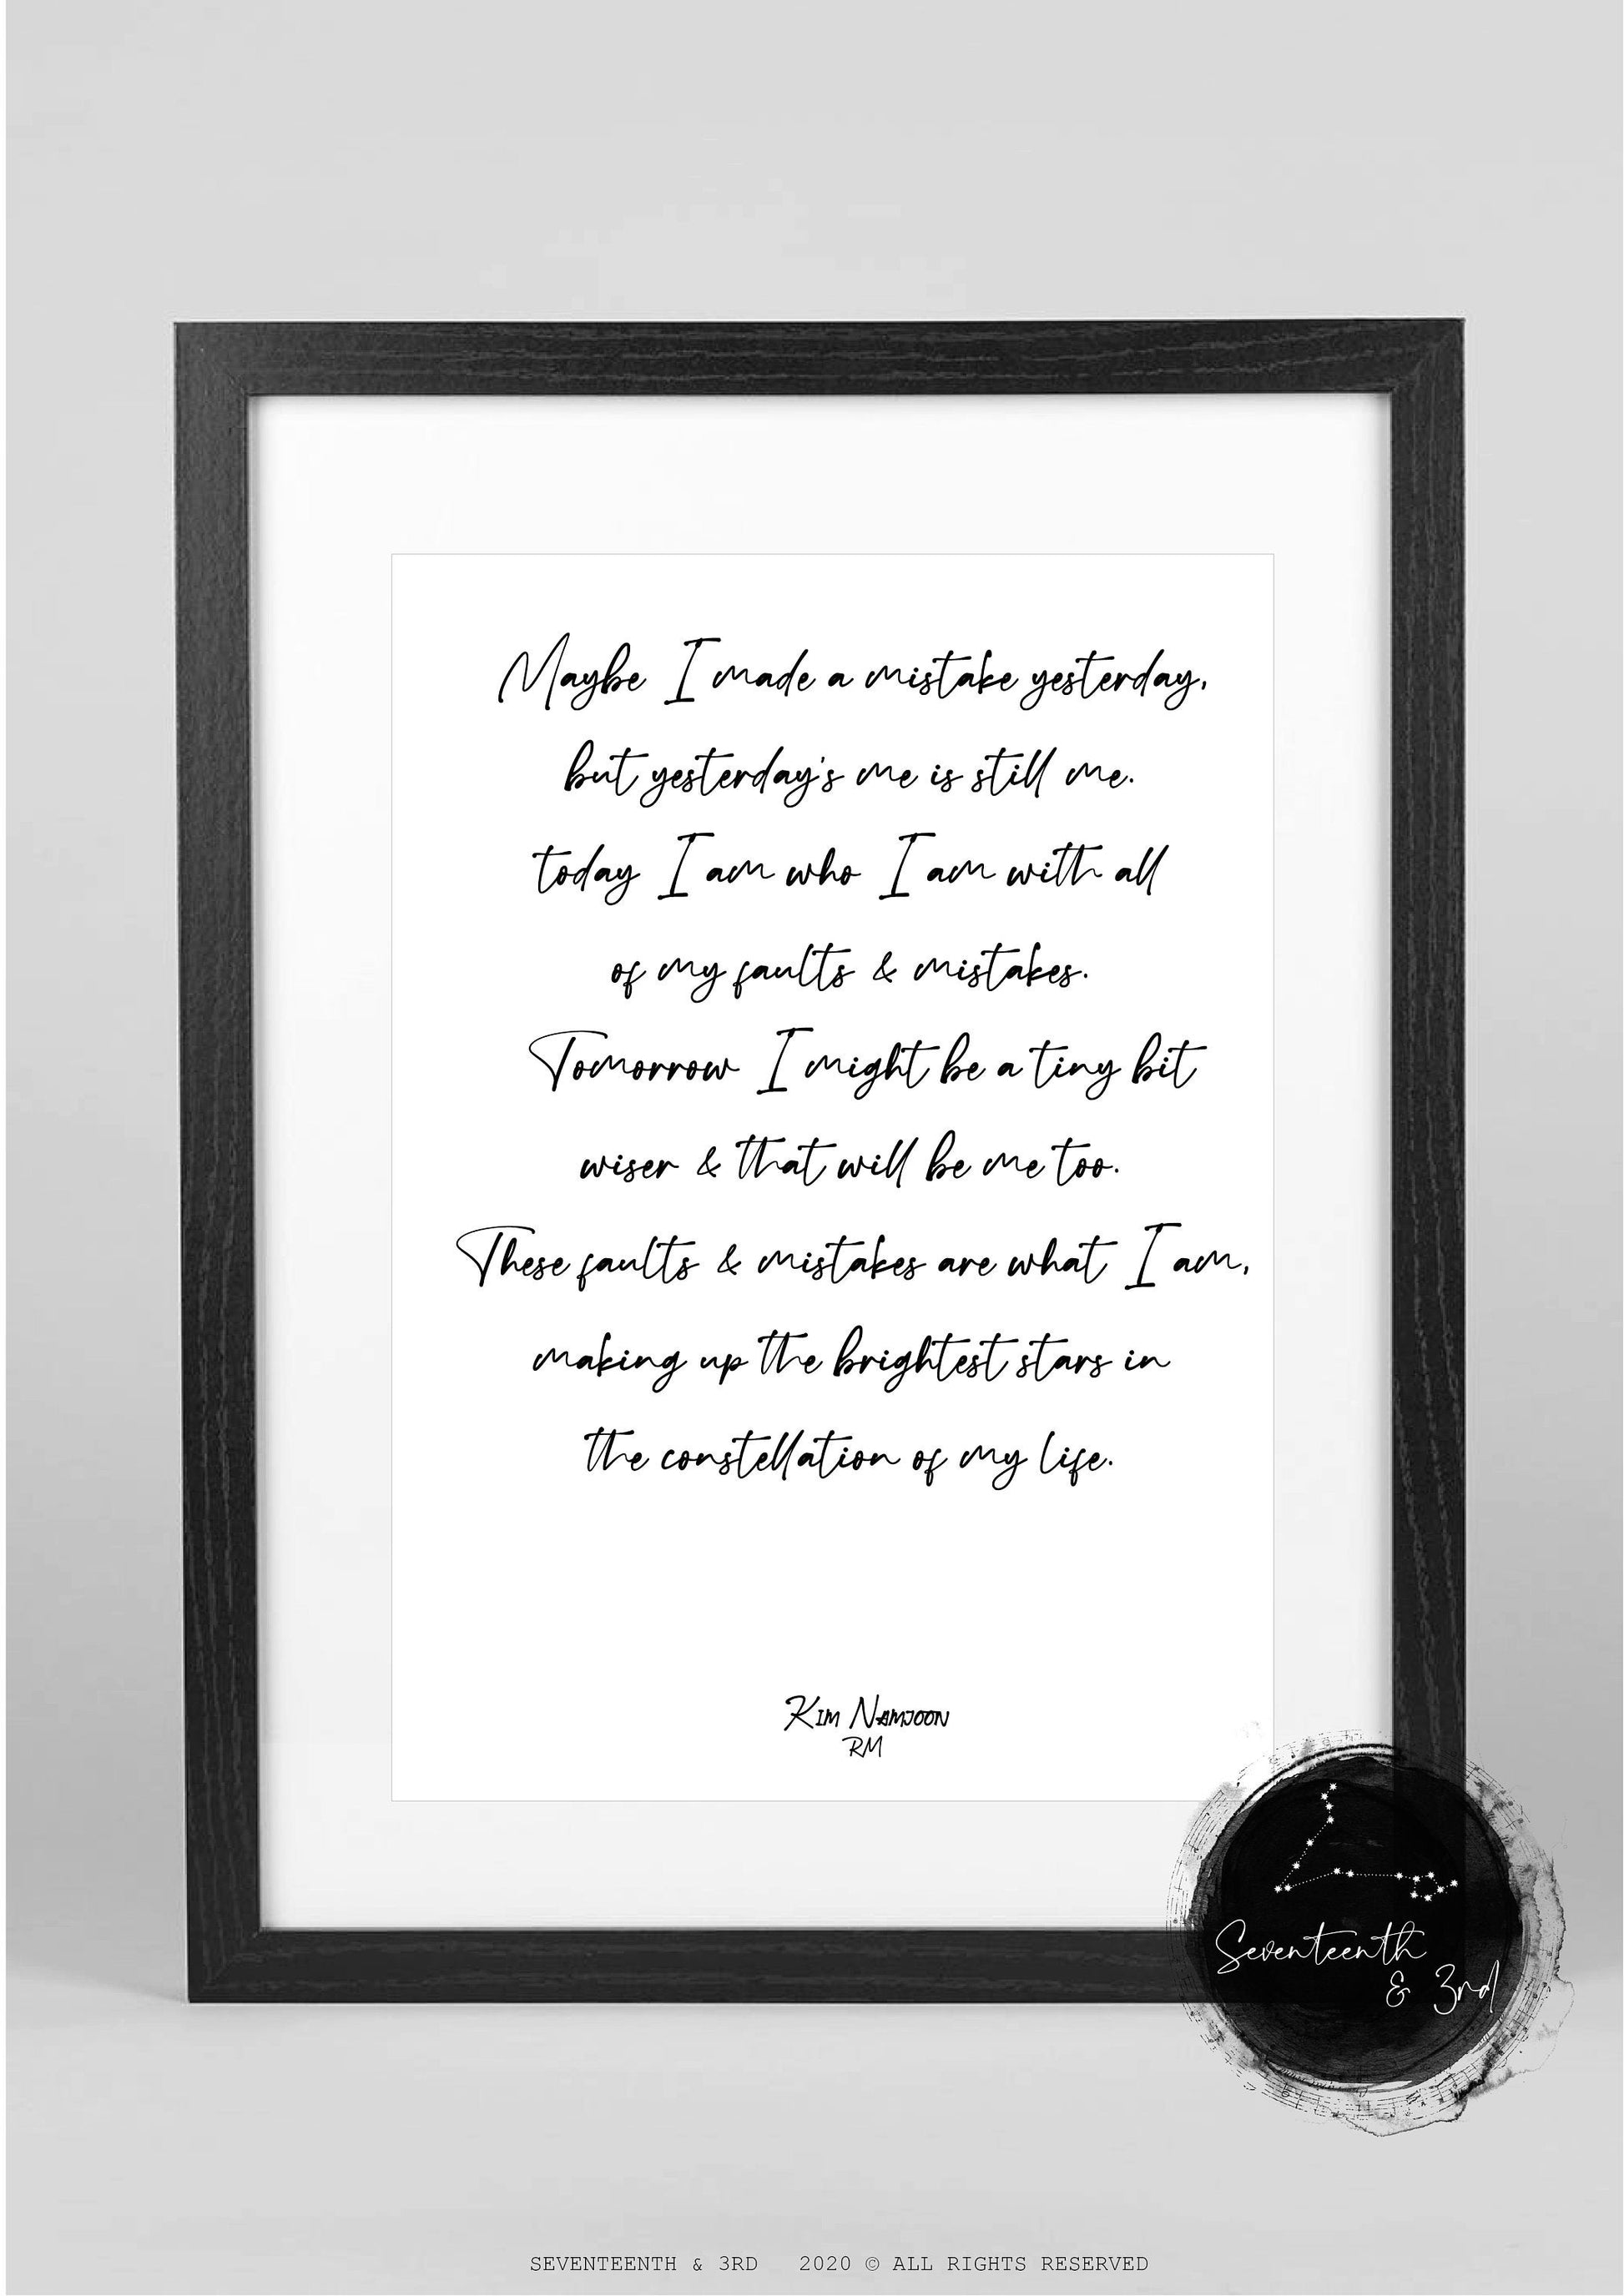 Maybe I made a mistake yesterday,
but yesterday's me is still me.
today I am who I am with all
of my faults & mistakes.
Tomorrow I might be a tiny bit
wiser & that will be me too.
These faults & mistakes are what I am,
making up the brightest stars in
the constellation of my life.
KIM NAMJOON
RM
Seventeenth
& 3rd
SEVENTEENTH & 3RD 2020 © ALL RIGHTS RESERVED